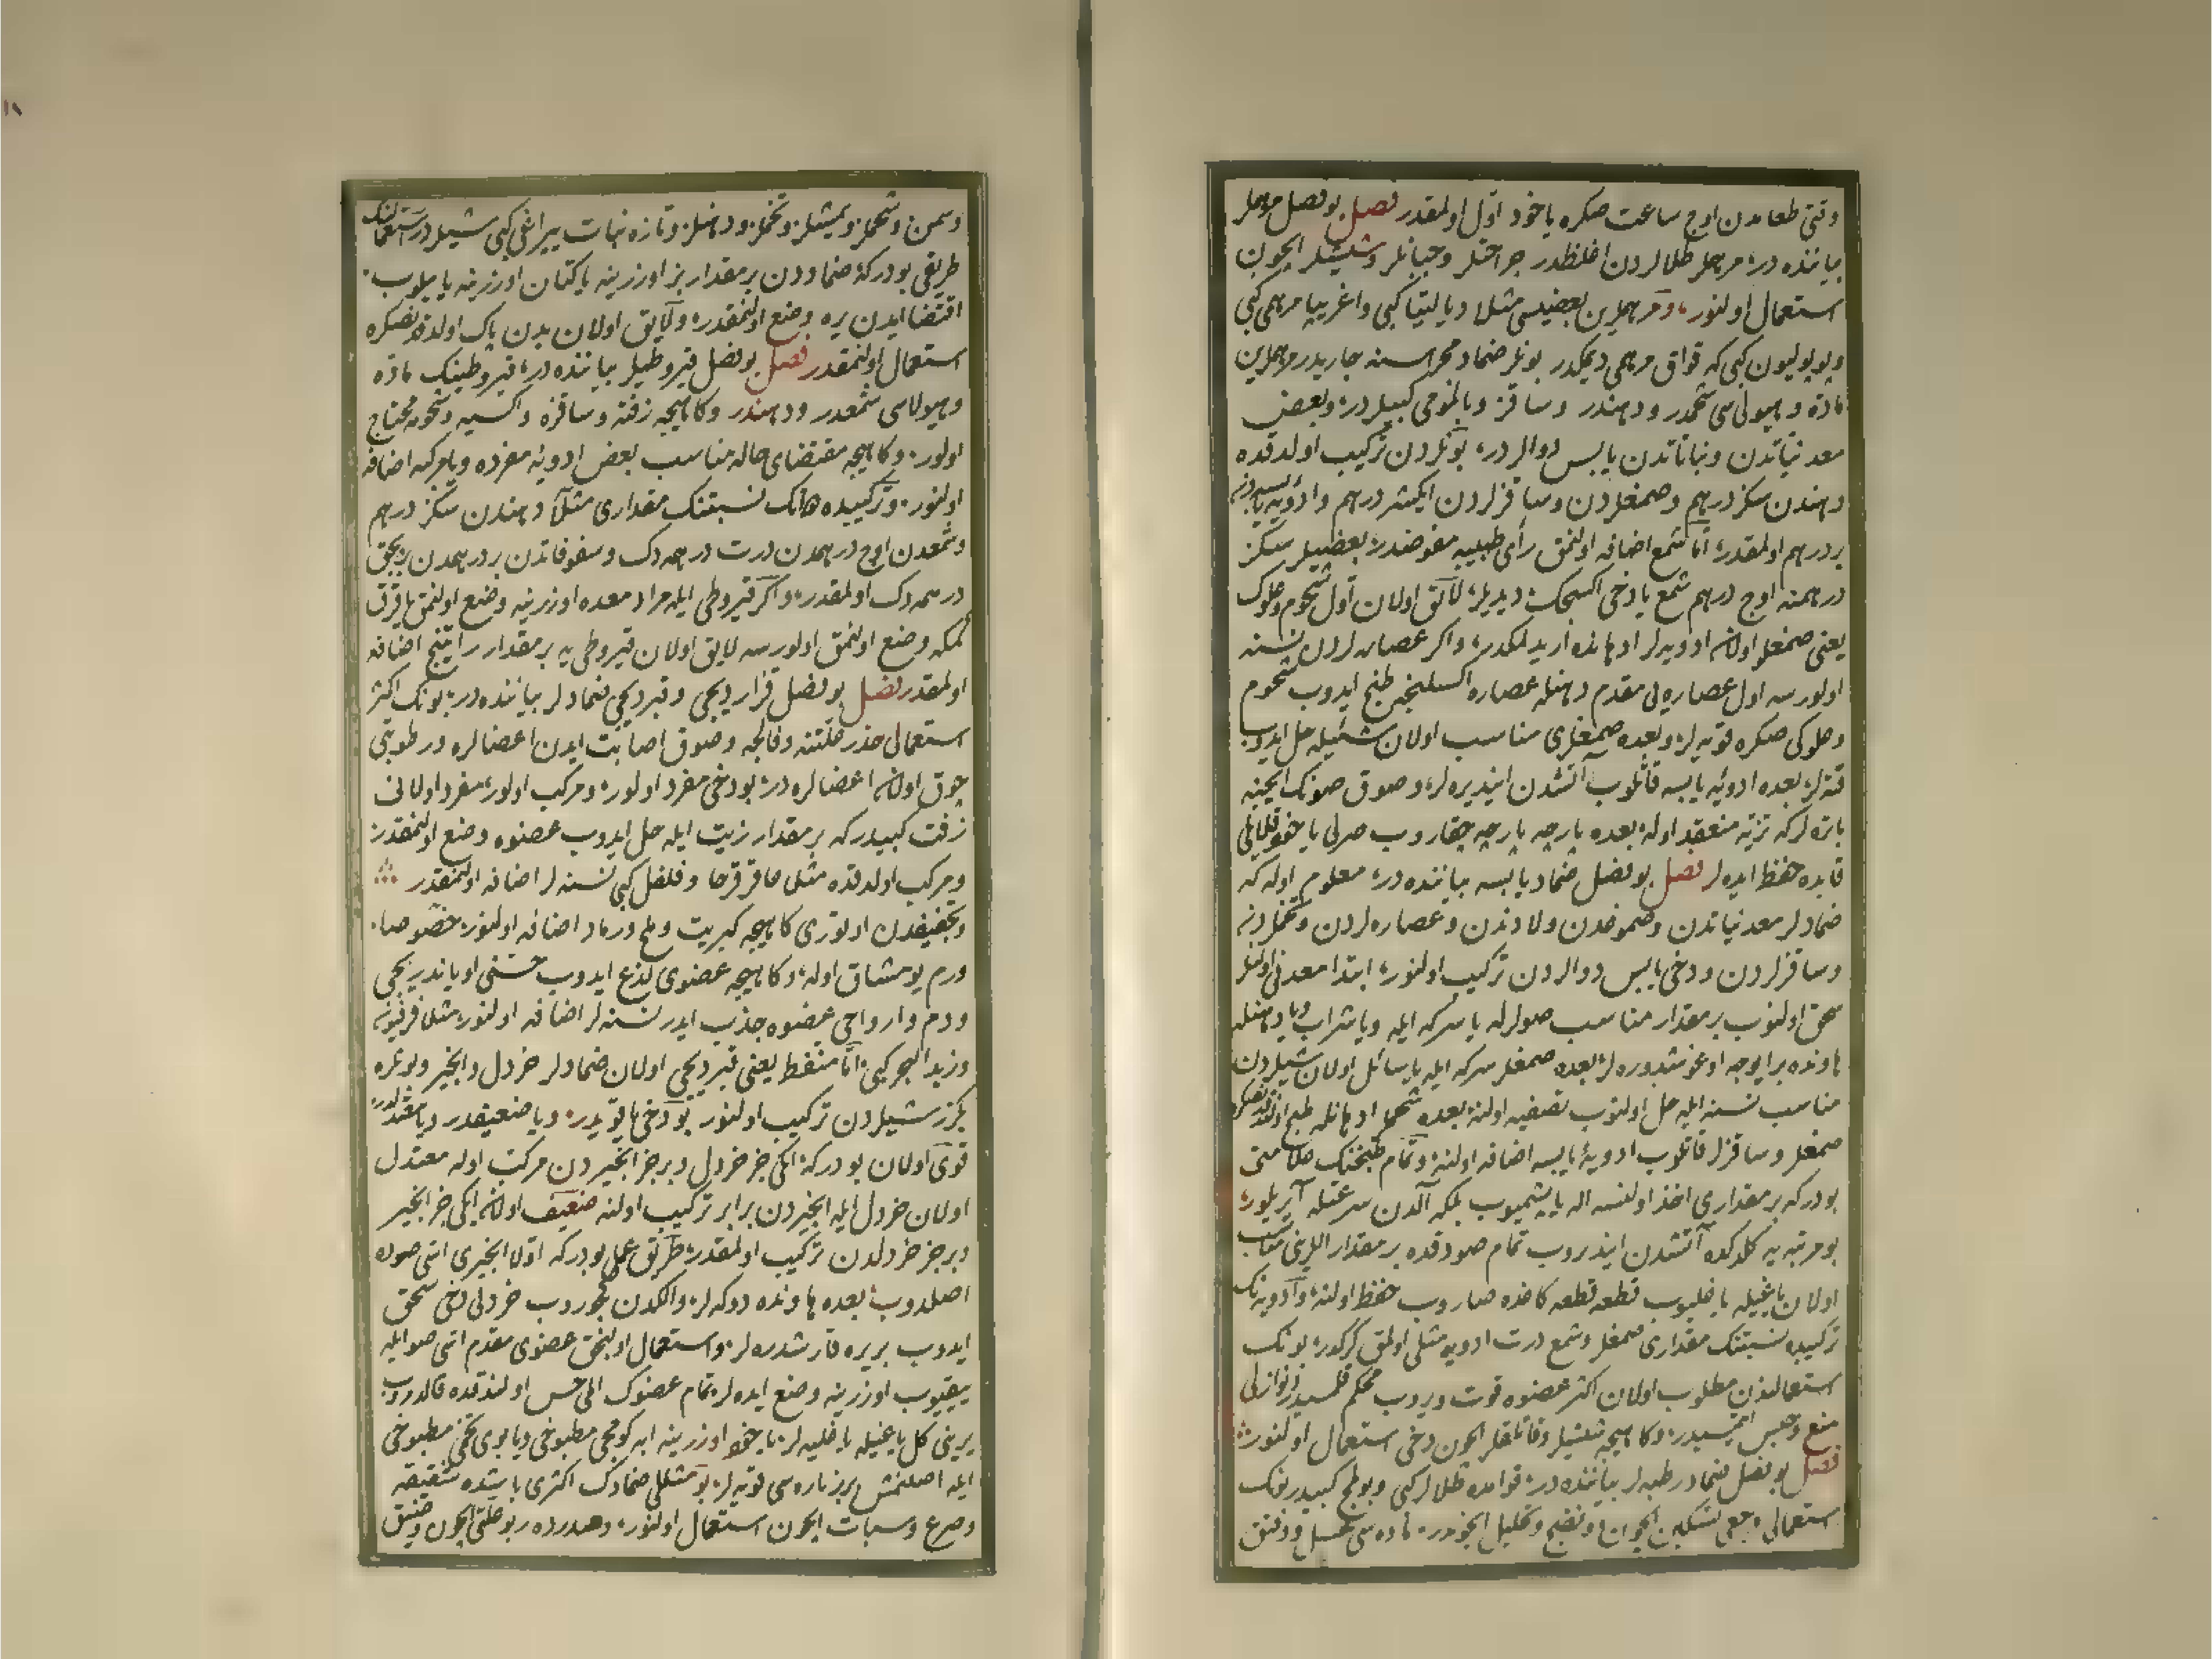 وقتی طعامدن اوج ساعت صکره یاخود اوّل اولمقدر فصل بو فصل مرهملر
بیاننده در مرهملر طلالردن اغلظدر جراحتلر وچبانلر وشیشلر ایچون
استعمال اولنور ومرهملرین بعضیسی مثلا دیالیتیا کبی واغریپا مرهمی کبی
وپوپولیون کبی که قواق مرهمی دیمکدر بونلر ضماد مجراسنه جاریدر مرهملرین
مادّه وهیولی سی شحمدر ودهندر وساقز وبالمومی کبیلر در وبعض
معدنیاتدن ونباتاتدن یابس دوالر در بونلردن ترکیب اولدقده
دهندن سکز درهم وصمغلردن وساقزلردن ایکیشر درهم وادویه یابسه دن
بر درهم اولمقدر امّا شمع اضافه اولنمق رأی طبیبه مفوضدر بعضیلر سکز
درهمنه اوج درهم شمع یا دخی اکسیجک دیدیلر لایق اولان اوّل شحوم وعلوک
یعنی صمغلو اولان ادویه لر ادهانده اریدلمکدر واکر عصاره لردن نسنه
اولورسه اول عصاره یی مقدم دهنله عصاره اکسیلنجه طبخ ایدوب شحوم
وعلوکی صکره قویه لر وبعده صمغلری مناسب اولان شیئیله حل ایدوب
قته لر بعده ادویه یابسه قاتلوب آتشدن ایندیره لر وصوق صونک ایچنه
بعده پارچه پارچه چقاروب صرلی یاخود
قابده حفظ ایده لر فصل بو فصل ضماد یابسه بیاننده در معلوم اوله که
ضمادلر معدنیاتدن وصموغدن ولادندن وعصاره لردن
وساقزلردن ودخی یابس دوالردن ترکیب اولنور ابتدا معدنی اولنلر
سحق اولنوب بر مقدار مناسب صولرله یا سرکه ایله ویا شراب ویا دهنله
هاونده بر ایوجه اوغوشدوره لر بعده صمغلر سرکه ایله یا سائل اولان شیلردن
مناسب نسنه ایله حل اولنوب تصفیه اولنه بعده شحملر ادهانله طبخ اولندقدنصکره
صمغلر وساقزلر قاتلوب ادویۀ یابسه اضافه اولنه وتمام طبخنک علامتی
بودرکه بر مقداری اخذ اولنسه اله یاپشمیوب بلکه آلدن سرعتله آیریلور
بو مرتبه یه کلدکده آتشدن ایندیروب تمام صودقده بر مقدار اللرینی مناسب
اولان یاغیله یاغلیوب قطعه قطعه کاغده صاروب حفظ اولنه وادویه نک
ترکیبده نسبتنک مقداری صمغلر وشمع درت ادویه مثلی اولمق کرکدر بونک
استعمالندن مطلوب اولان اکثر عضوه قوت ویروب محکم قلمیدر نوازلی
منع وحبس ایتمیدر وکاهیجه شیشلر وقاتلقلر ایچون دخی استعمال اولنور
فصل بو فصل ضماد رطبه لر بیاننده در قوامده طلالر کبی کبیدر بونک
استعمالی وجعی تسکین ایچون ونضج وتحلیل ایچوندر مادّه سی عسل ودقیق
وسمن وشحملر ویمشلر وتخملر ودهنلر وتازه نبات یپراغی کبی شیلر در استعمالنک
طریقی بودرکه ضماددن بر مقدار بز اوزرینه یا کتان اوزرینه یاییلوب
اقتضا ایدن یره وضع اولنمقدر ولایق اولان بدن پاک اولدقدنصکره
استعمال اولنمقدر فصل بو فصل قیروطیلر بیاننده در قیروطینک مادّه
وهیولاسی شمعدر ودهندر وکاهیجه زفته وساقزه واکسیه وشحومه محتاج
اولور وکاهیجه مقتضای حاله مناسب بعض ادویۀ مفرده ویا مرکبه اضافه
اولنور وترکیبده هانک نسبتنک مقداری مثلا دهندن سکز درهم
وشمعدن اوج درهمدن درت درهمه دک وسفوفاتدن بر درهمدن بر بجق
درهمه دک اولمقدر واکر قیروطی ایله مراد معده اوزرینه وضع اولنمق یا قرق
کمکه وضع اولنمق اولورسه لایق اولان قیروطی یه بر مقدار راتینج اضافه
اولمقدر فصل بو فصل قزاردیجی وقبردیجی ضمادلر بیاننده در بونک اکثر
استعمالی خدر علتنه وفالجه وصوق اصابت ایدن اعضالره ورطوبتی
چوق اولان اعضالره در بو دخی مفرد اولور ومرکب اولور مفرد اولانی
زفت کبیدر که بر مقدار زیت ایله حل ایدوب عضوه وضع اولنمقدر
ومرکب اولدقده مثلا عاقرقرحا وفلفل کبی نسنه لر اضافه اولنمقدر
وتجفیفدن اوتوری کاهیجه کبریت وملح ورماد اضافه اولنور خصوصا
ورم یومشاق اوله وکاهیجه عضوی لذع ایدوب حسنی اویاندیریجی
ودم وارواحی عضوه جذب ایدر نسنه لر اضافه اولنور مثلا فرفیون
وزبد البحر کبی امّا منفط یعنی قبردیجی اولان ضمادلر خردل وانجیر وبونلره
بکزر شیلردن ترکیب اولنور بو دخی یا قویدر ویا ضعیفدر ویا معتدلدر
قوی اولان بودرکه ایکی جز خردل وبر جز انجیردن مرکب اوله معتدل
اولان خردل ایله انجیردن برابر ترکیب اولنه ضعیف اولان ایکی جز انجیر
وبر جز خردلدن ترکیب اولمقدر طریق عمل بودرکه اوّلا انجیری اسّی صوده
اصلدوب بعده هاونده دوکه لر والکدن کچوروب خردلی دخی سحق
ایدوب بر یره قارشدره لر واستعمال اولنجق عضوی مقدم اسّی صو ایله
ییقیوب اوزرینه وضع ایده لر تمام عضوک المی حس اولندقده قالدروب
یرینی کل یاغیله یاغلیه لر یاخود اوزرینه ابه کومجی مطبوخی ویا بوی تخمی مطبوخی
ایله اصلنمش بر بز پاره سی قویه لر بو مثللی ضمادک اکثری باشده شقیقه
وصرع وسبات ایچون استعمال اولنور وصدرده ربو علتی ایچون وضیق